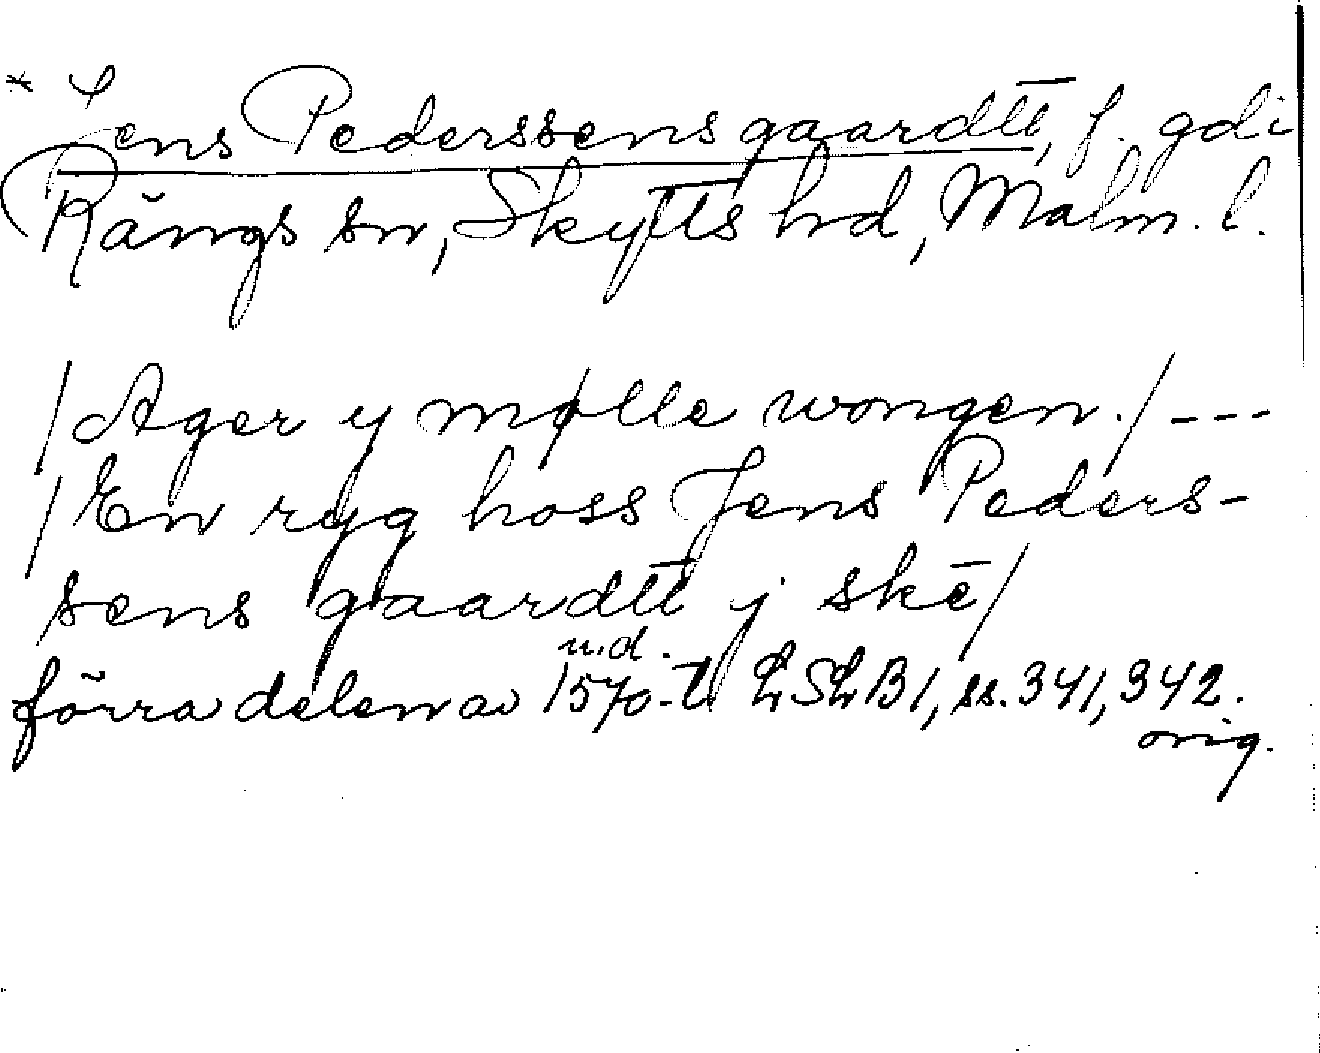 * Jens Pederssens gaardtt, f. gd i
Rängs sn, Skytts hd, Malm. l.
/Ager y mølle wongen./---
/En ryg hoss Jens Peders-
sens gaardtt j skē/
u.d.
förra delen av 1570-t. LSLB1, ss. 341, 342.
orig.